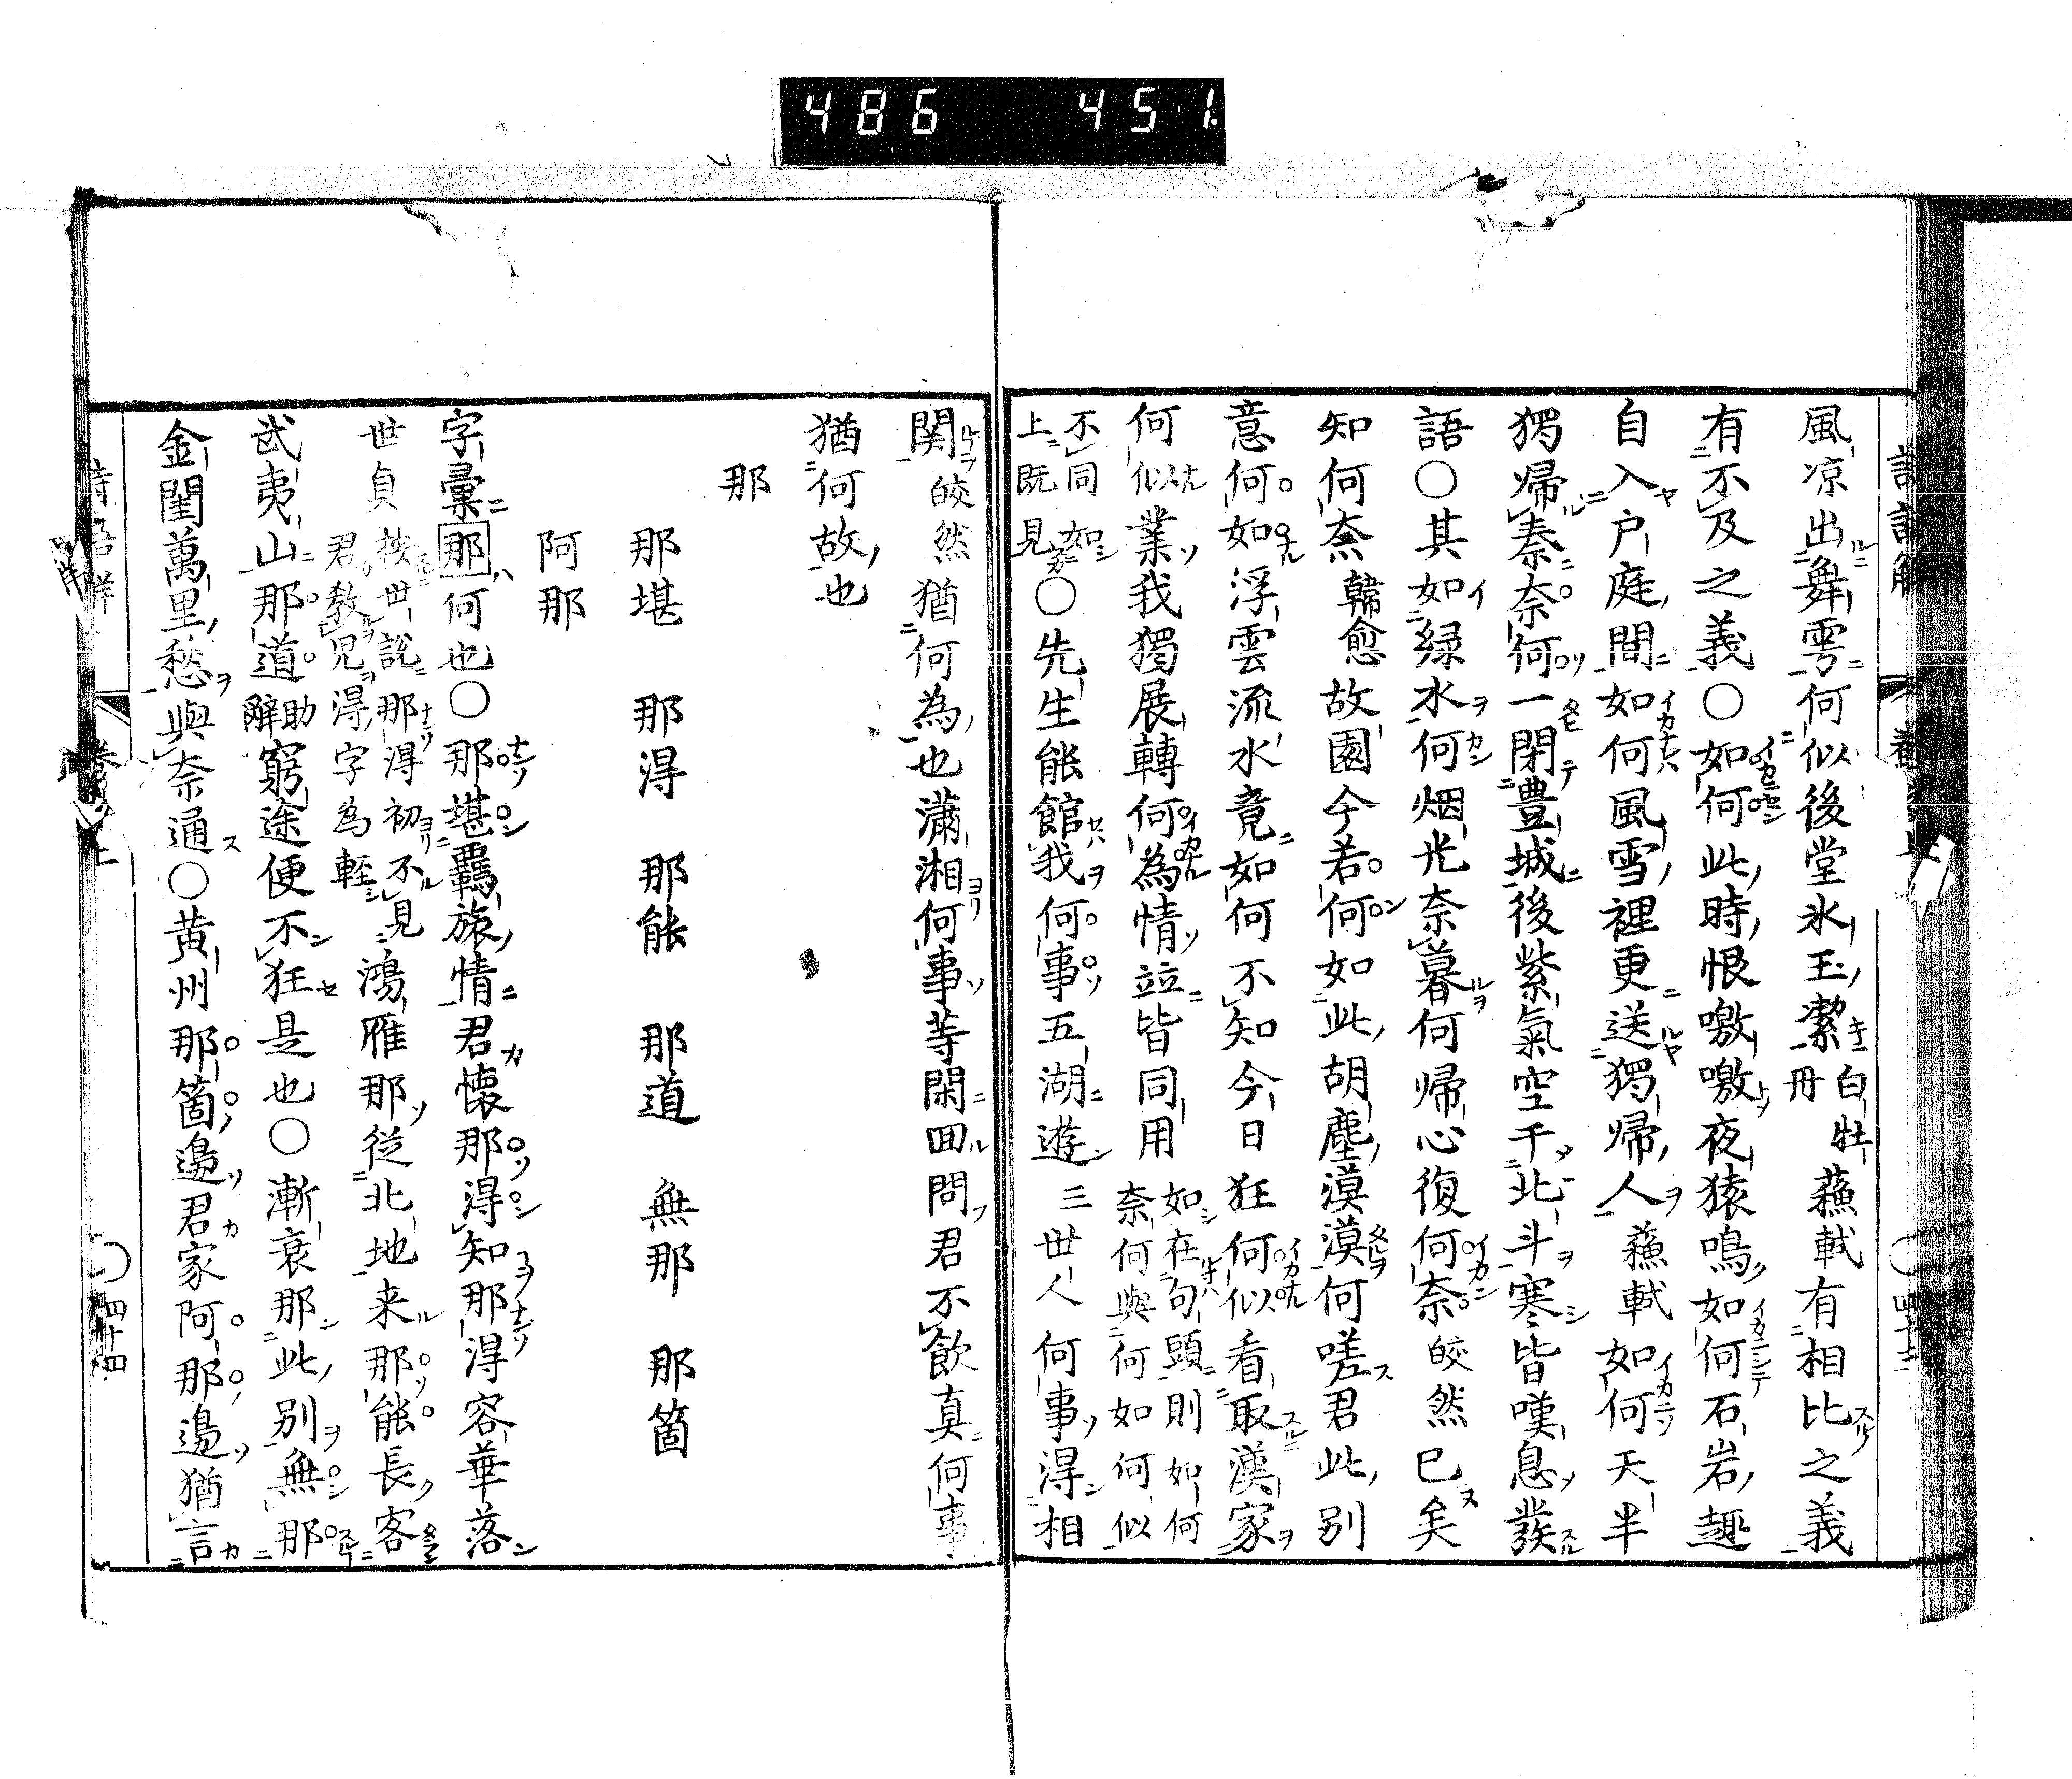 486 451
風凉出舞雩何似後堂氷玉潔白牡丹蘓軾有相比之義
有不及之義〇如何此時恨噭噭夜猿鳴如何石岩趣
自入户庭間如何風雪裡更送獨帰人蘓軾如何天半
獨帰秦奈何一閉豊城後紫氣空干北斗寒皆嘆息發
語〇其如緑水何烟光奈暮何帰心復何奈皎然已矣
知何奈韓愈故園今若何如此胡塵漠漠何嗟君此别
意何如浮雲流水竟如何不知今日狂何似看取漢家
何似業我獨展轉何為情竝皆同用如在句頭則如何奈何與何如何似
不同如上既見〇先生能館我何事五湖遊三世人何事得相
関皎然猶何為也瀟湘何事等閑回問君不飲真何事
猶何故也
那
那堪 那得 那能 那道 無那 那箇
阿那
字彙那何也〇那堪羈旅情君懐那得知那得容華落
世貞按世說那得初不見君教児得字為軽鴻雁那従北地来那能長客
武夷山那道助辭窮途便不狂是也〇漸衰那此别無那
金閨萬里愁與奈通〇黄州那箇邉君家阿那邉猶言
四十四